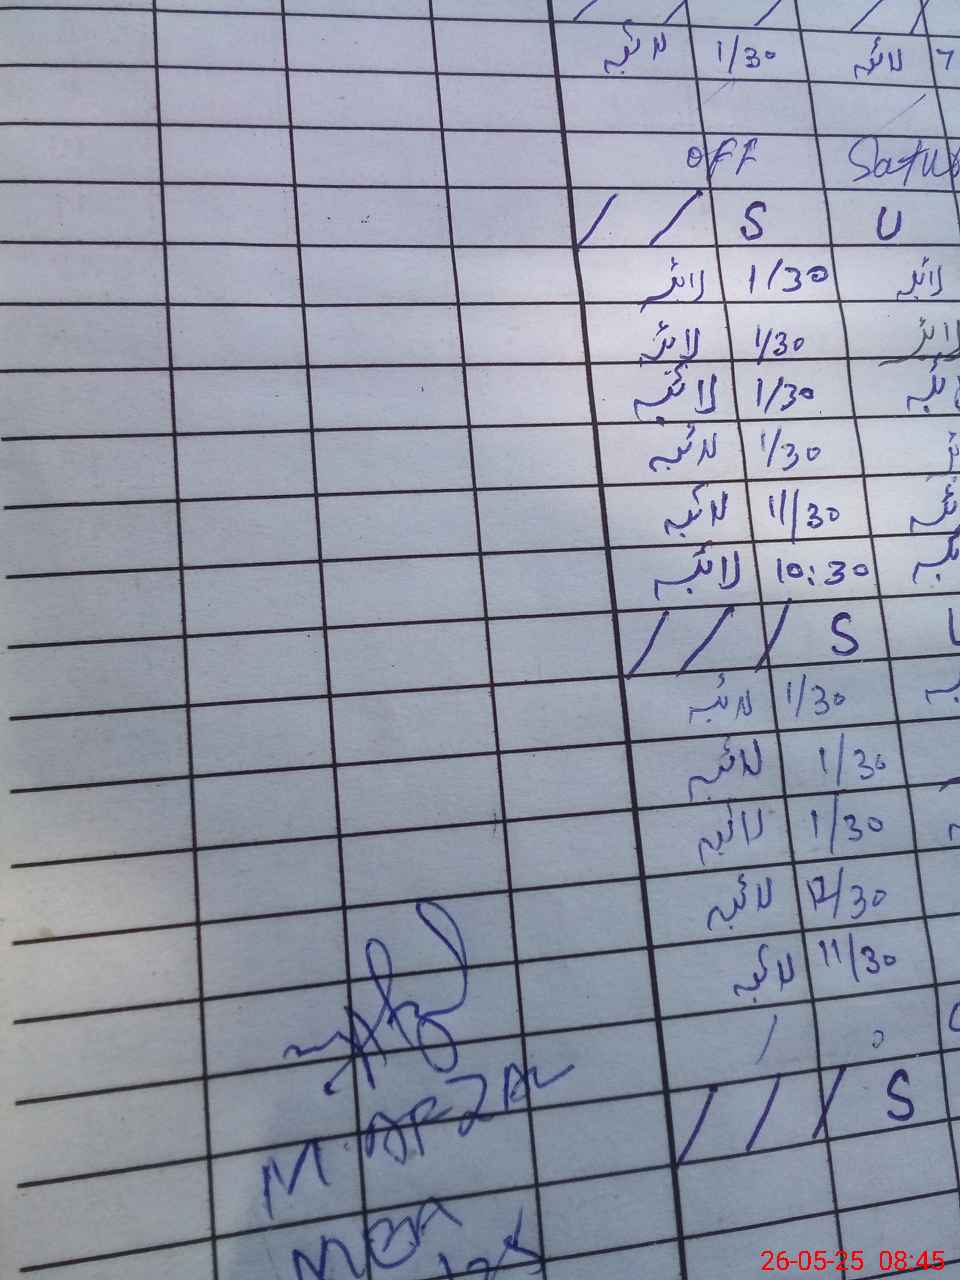 لائبہ 1/30 لائبہ
OFF Satu
/ / S U
لائبہ 1/30 لائبہ
لائبہ 1/30 لائبہ
لائبہ 1/30 لائبہ
لائبہ 1/30
لائبہ 11/30
لائبہ 10:30
/ / / S U
لائبہ 1/30
لائبہ 1/30
لائبہ 1/30
لائبہ 12/30
لائبہ 11/30
/ / / S
M. AFZAL
26-05-25 08:45